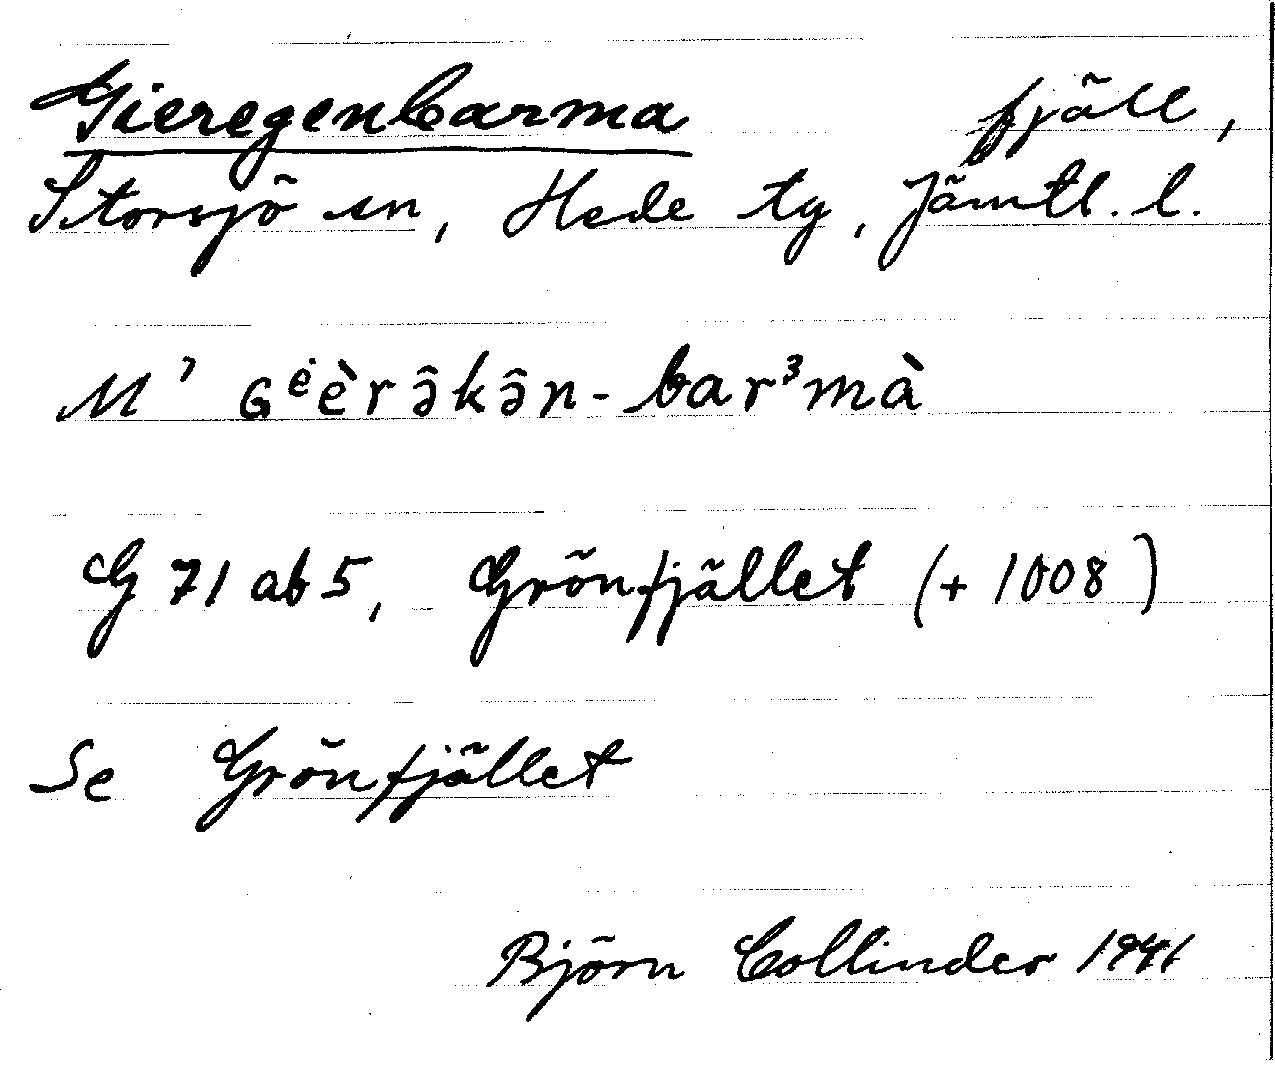 Gieregenbarma fjäll,
Storsjö sn, Hede tg, Jämtl. l.
M' Gėèrə̂kə̂n-bar³mà
G 71 ab 5, Grönfjället (+ 1008)
Se Grönfjället
Björn Collinder 1941